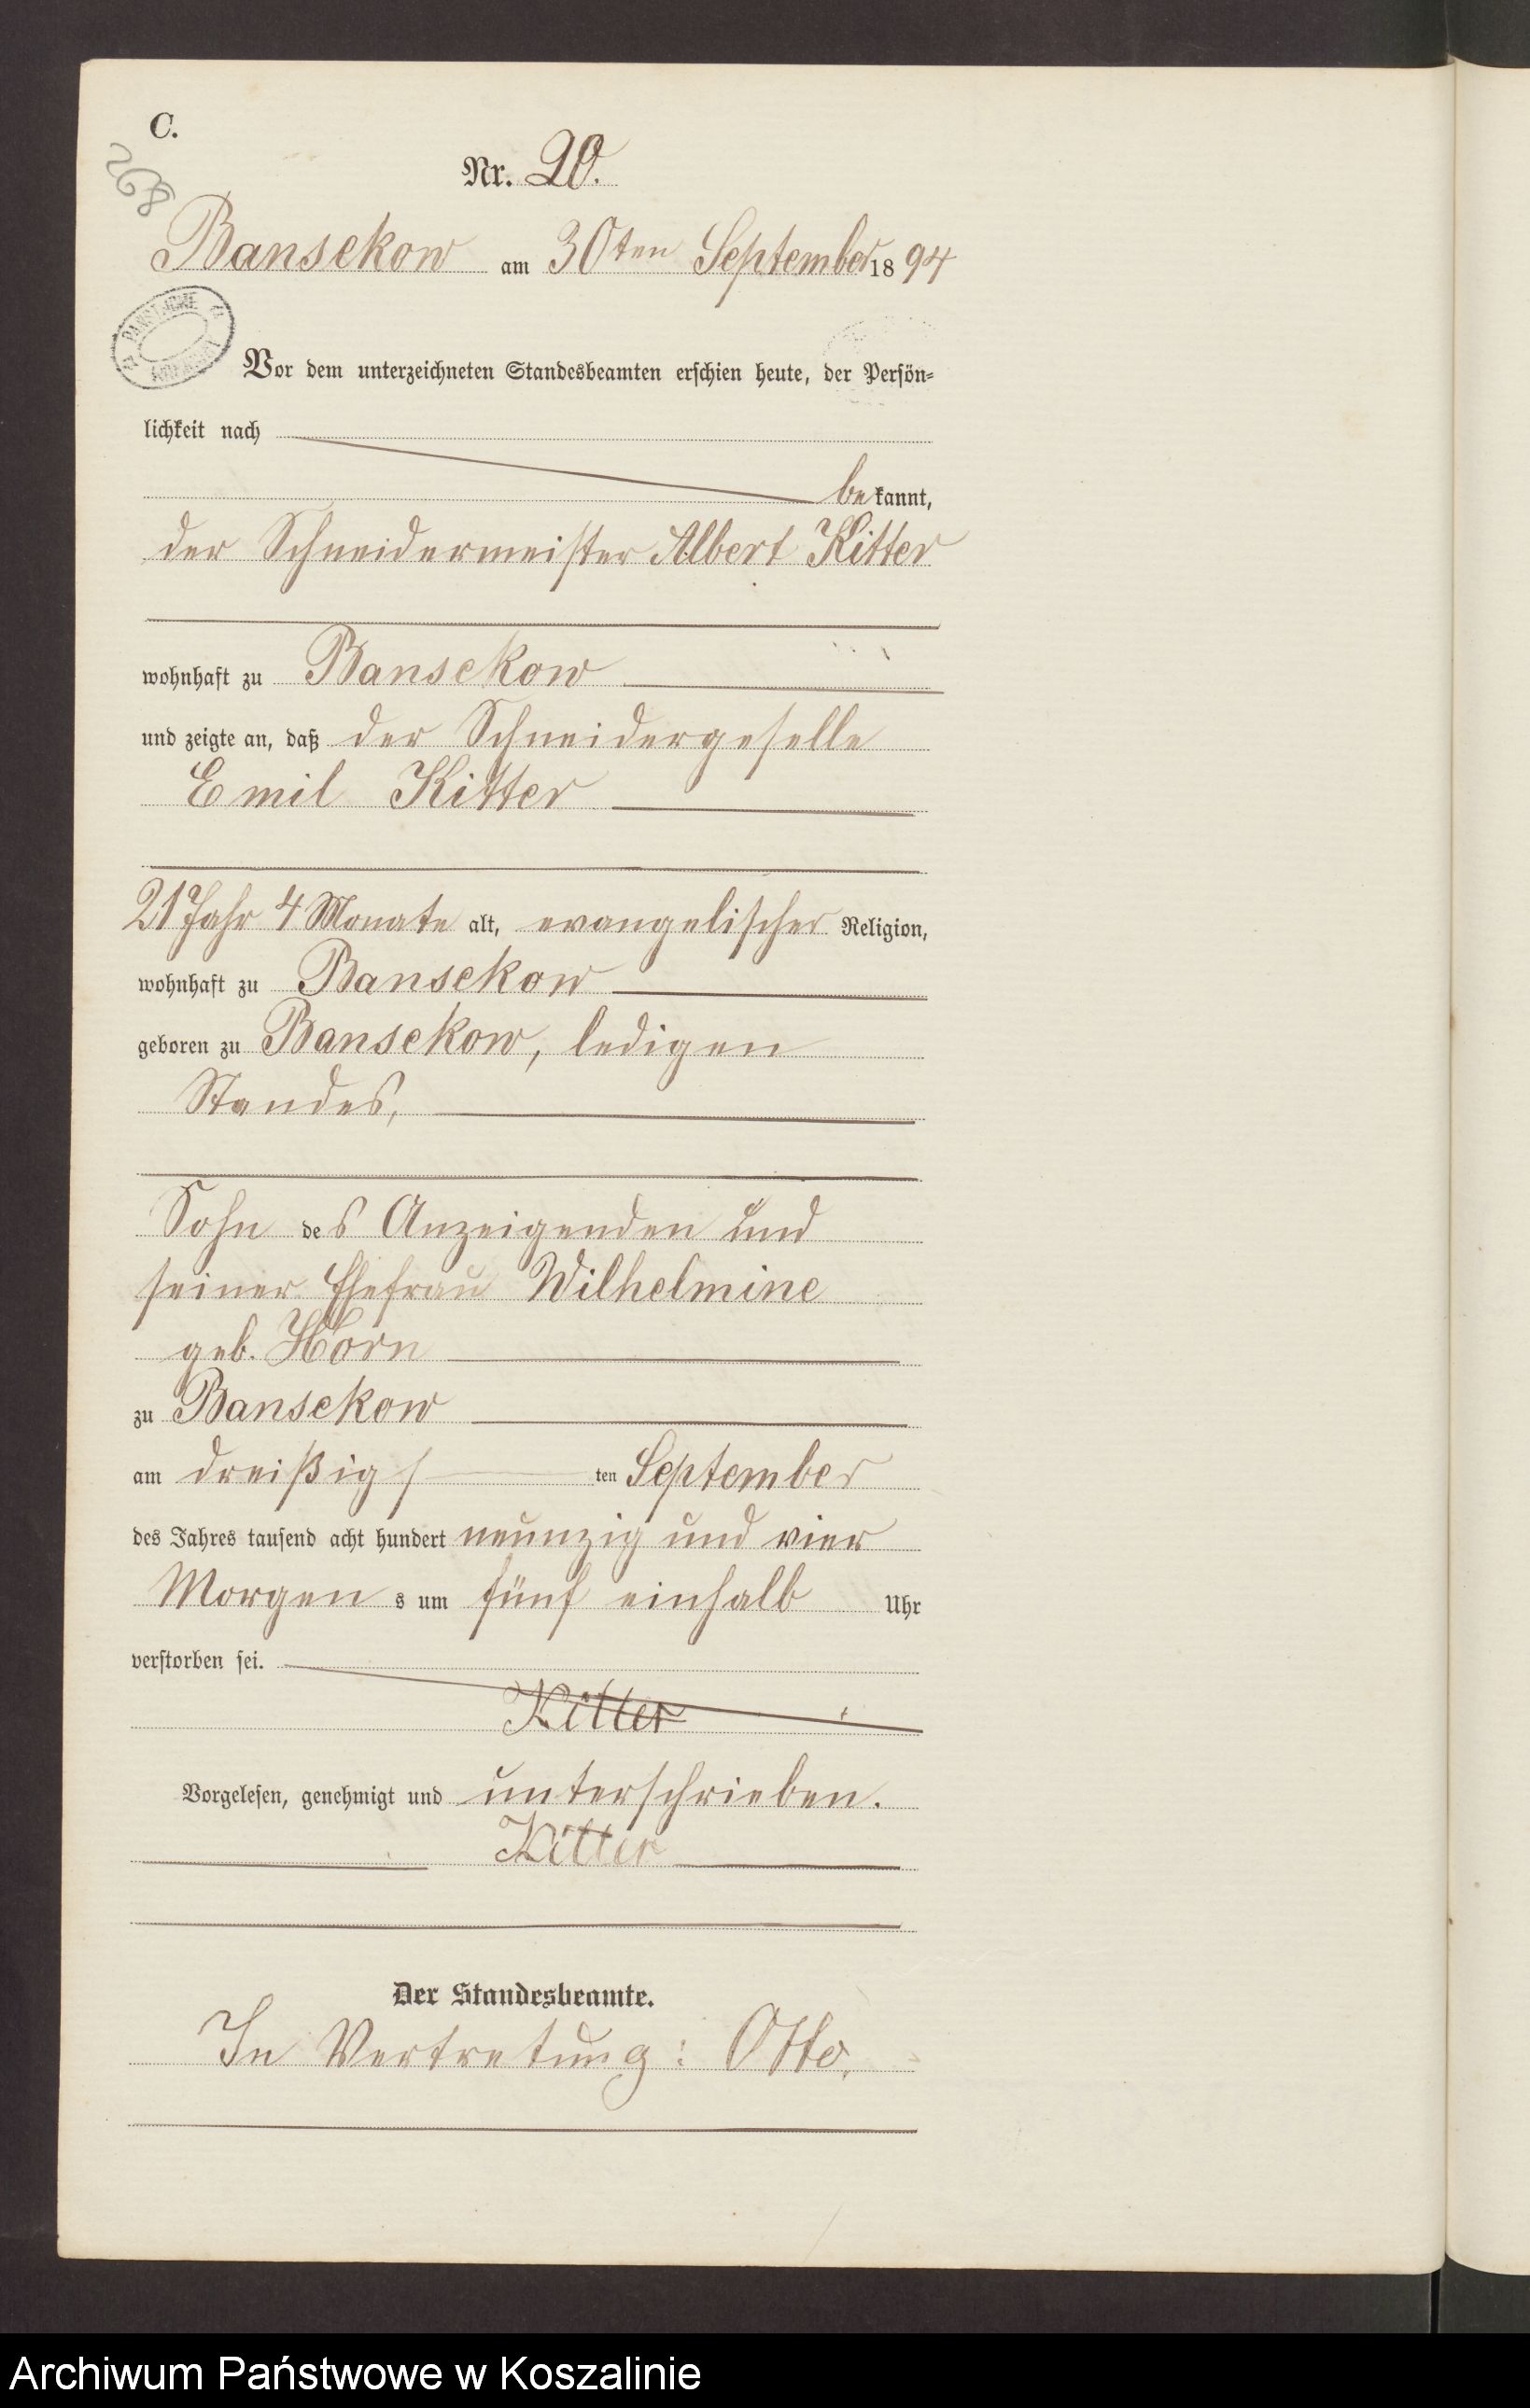 C.
268
Nr. 20.
Bansekow am 30ten September 1894
Vor dem unterzeichneten Standesbeamten erschien heute, der Persön-
lichkeit nach
bekannt,
der Schneidermeister Albert Kitter
wohnhaft zu Bansekow
und zeigte an, daß der Schneidergeselle
Emil Kitter
21 Jahr 4 Monate alt, evangelischer Religion,
wohnhaft zu Bansekow
geboren zu Bansekow, ledigen
Standes,
Sohn des Anzeigenden und
seiner Ehefrau Wilhelmine
geb. Horn
zu Bansekow
am dreißigs ten September
des Jahres tausend acht hundert neunzig und vier
Morgen s um fünf einhalb Uhr
verstorben sei.
Kitter
Vorgelesen, genehmigt und unterschrieben.
Kitter
Der Standesbeamte.
In Vertretung: Otto.
Archiwum Państwowe w Koszalinie